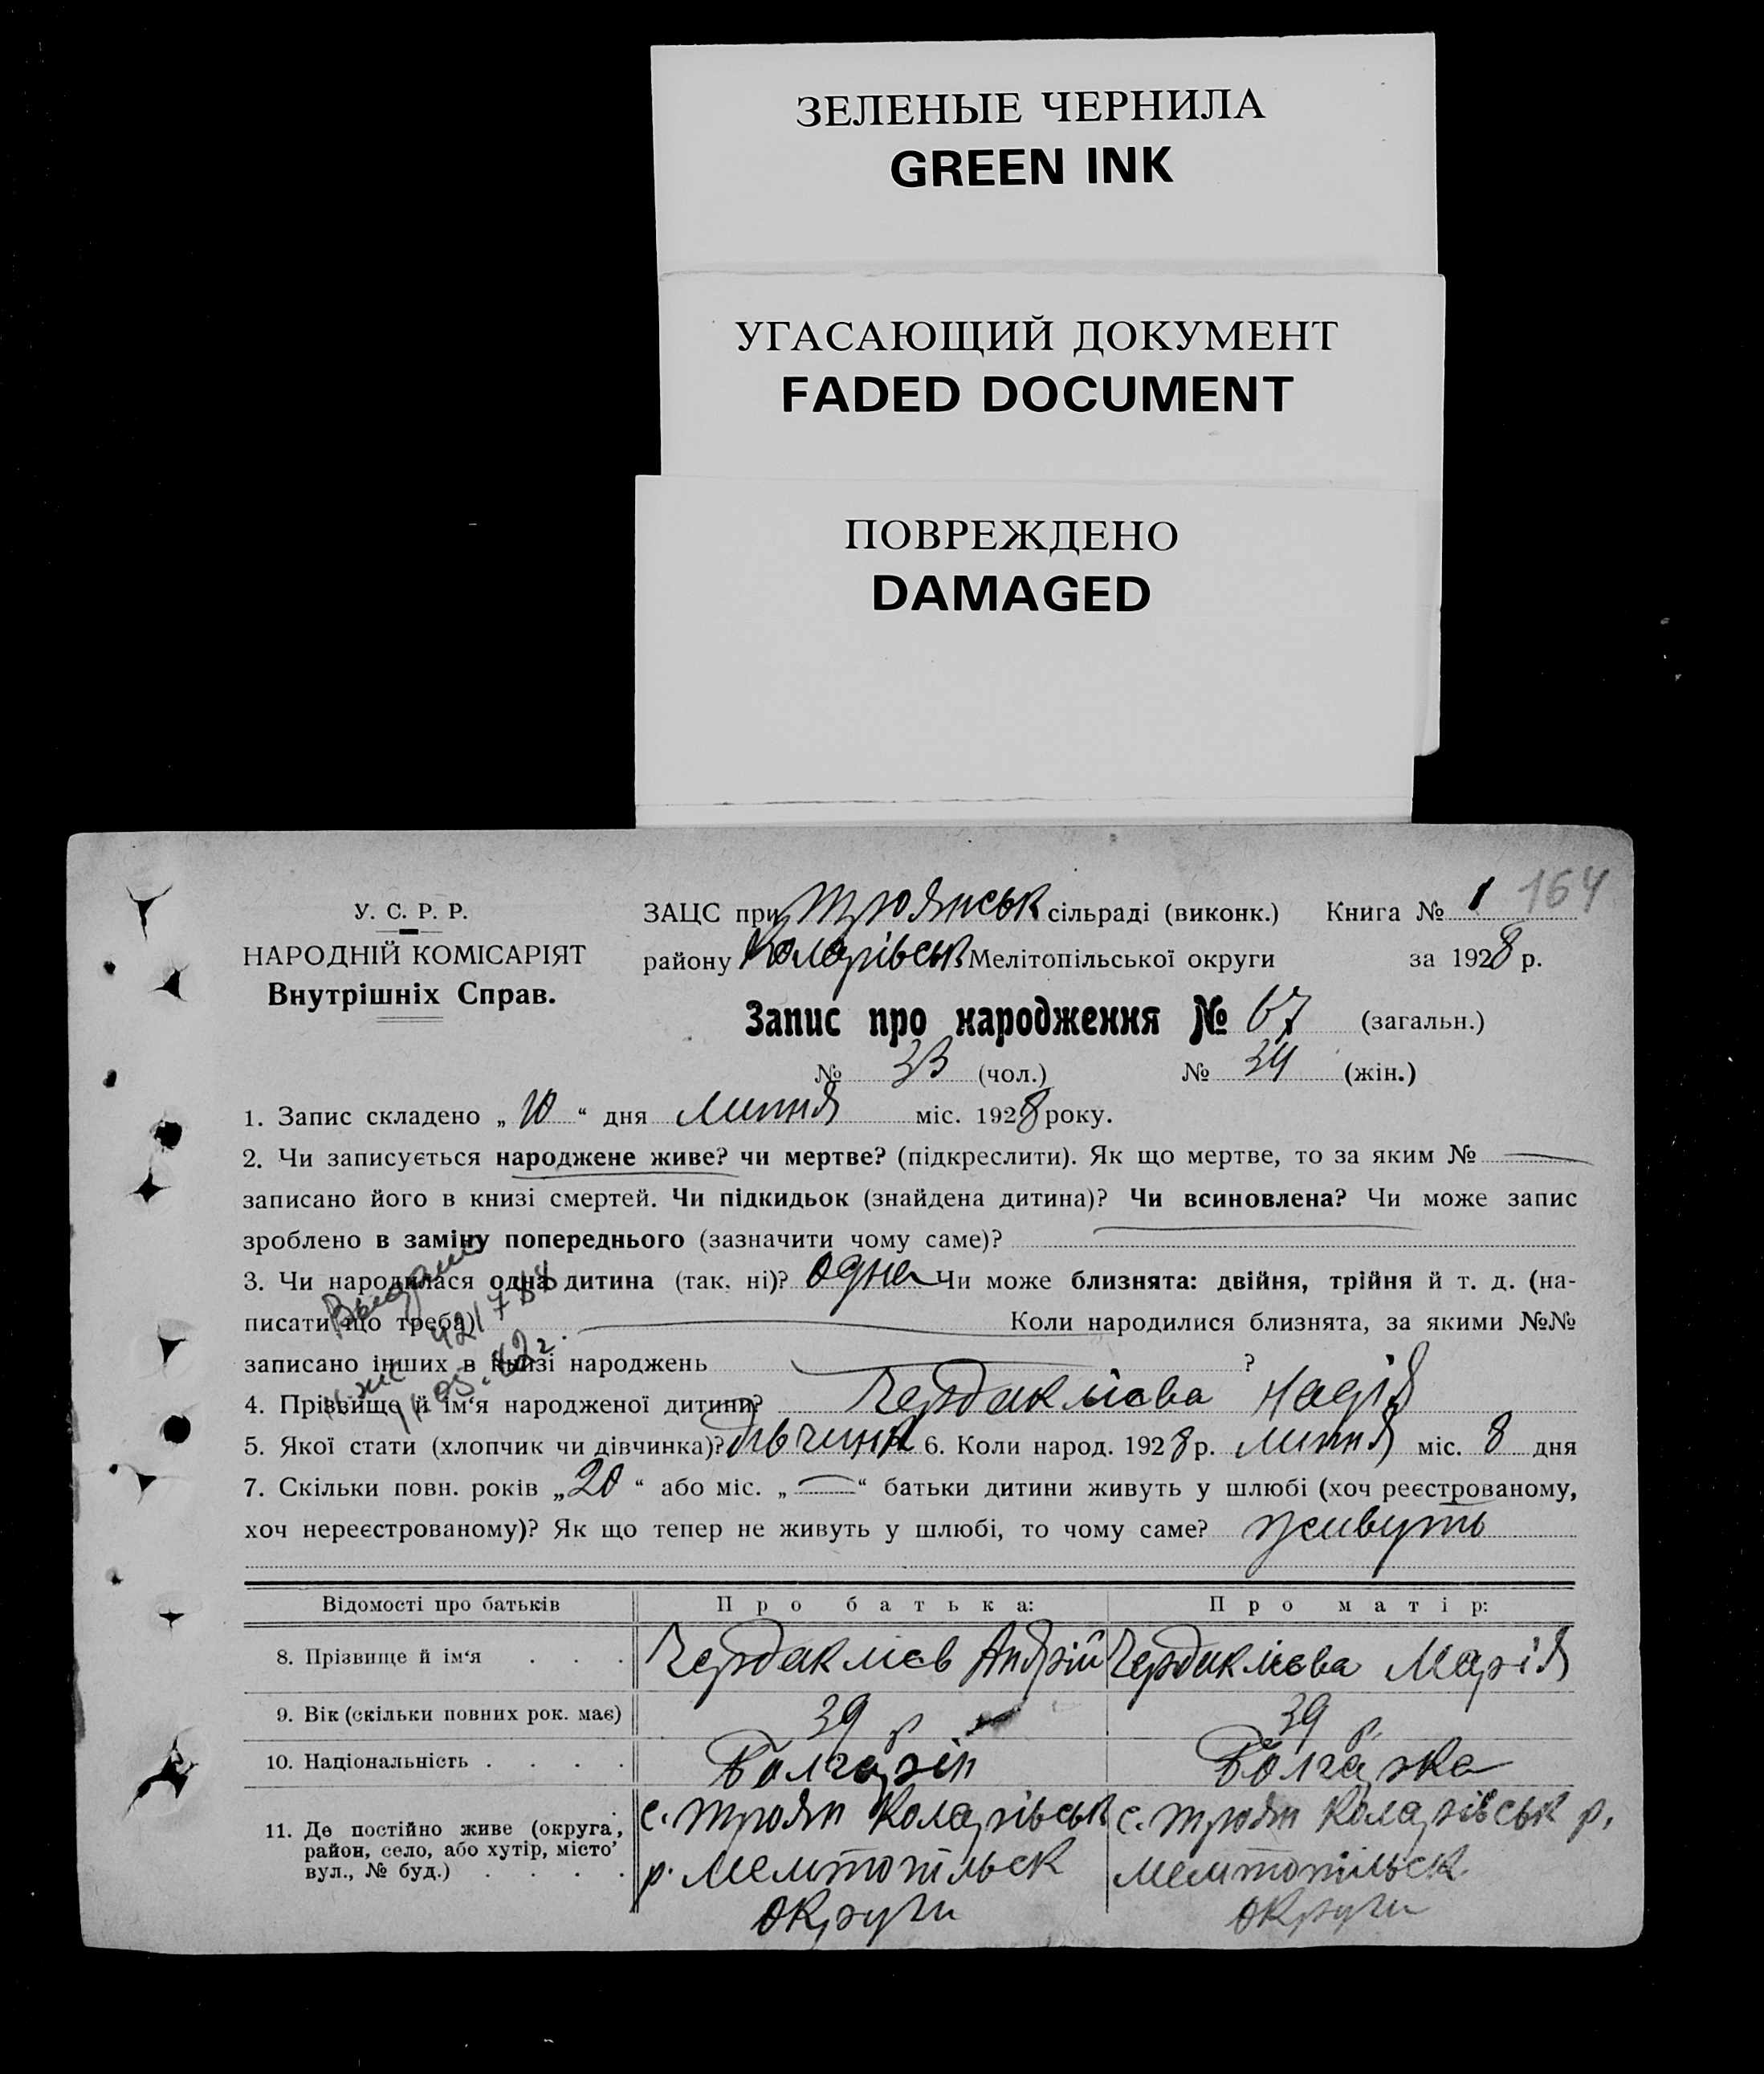 ЗЕЛЕНЫЕ ЧЕРНИЛА
GREEN INK
УГАСАЮЩИЙ ДОКУМЕНТ
FADED DOCUMENT
ПОВРЕЖДЕНО
DAMAGED
164
У. С. Р. Р.
НАРОДНІЙ КОМІСАРІЯТ
Внутрішніх Справ.
ЗАЦС при Троянськ сільраді (виконк.) Книга № 1
району Коларівськ Мелітопільської округи за 1928 р.
Запис про народження № 67 (загальн.)
№ 33 (чол.) № 34 (жін.)
1. Запис складено „ 10 “ дня липня міс. 1928 року.
2. Чи записується народжене живе? чи мертве? (підкреслити). Як що мертве, то за яким №
записано його в книзі смертей. Чи підкидьок (знайдена дитина)? Чи всиновлена? Чи може запис
зроблено в заміну попереднього (зазначити чому саме)?
3. Чи народилася одна дитина (так, ні)? одна Чи може близнята: двійня, трійня й т. д. (на-
писати що треба) Коли народилися близнята, за якими №№
записано інших в книзі народжень ?
4. Прізвище й ім‘я народженої дитини? Чердаклієва Надія
5. Якої стати (хлопчик чи дівчинка)? дівчина 6. Коли народ. 1928 р. липня міс. 8 дня
7. Скільки повн. років „ 20 “ або міс. „ — “ батьки дитини живуть у шлюбі (хоч реєстрованому,
хоч нереєстрованому)? Як що тепер не живуть у шлюбі, то чому саме? живуть
Відомості про батьків Про батька: Про матір:
8. Прізвище й ім‘я . . . Чердаклієв Андрій Чердаклієва Марія
9. Вік (скільки повних рок. має) 39 р 39 р.
10. Національність . . . . Болгарін Болгарка
11. Де постійно живе (округа, район, село, або хутір, місто вул., № буд.) . . . .
с. Троян Коларівськ
р. Мелітопільск
округи
с. Троян Коларівськ р.
Мелітопільск.
округи